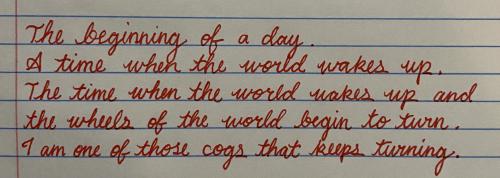 The beginning of a day.
A time when the world wakes up.
The time when the world wakes up and
the wheels of the world begin to turn.
I am one of those cogs that keeps turning.